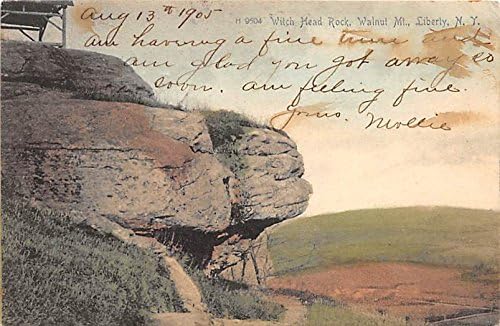 Aug 13th 1905
H 9504 Witch Head Rock, Walnut Mt., Liberly, N. Y.
am having a fine time and
am glad you got away so
soon. am feeling fine.
Yours. Mollie